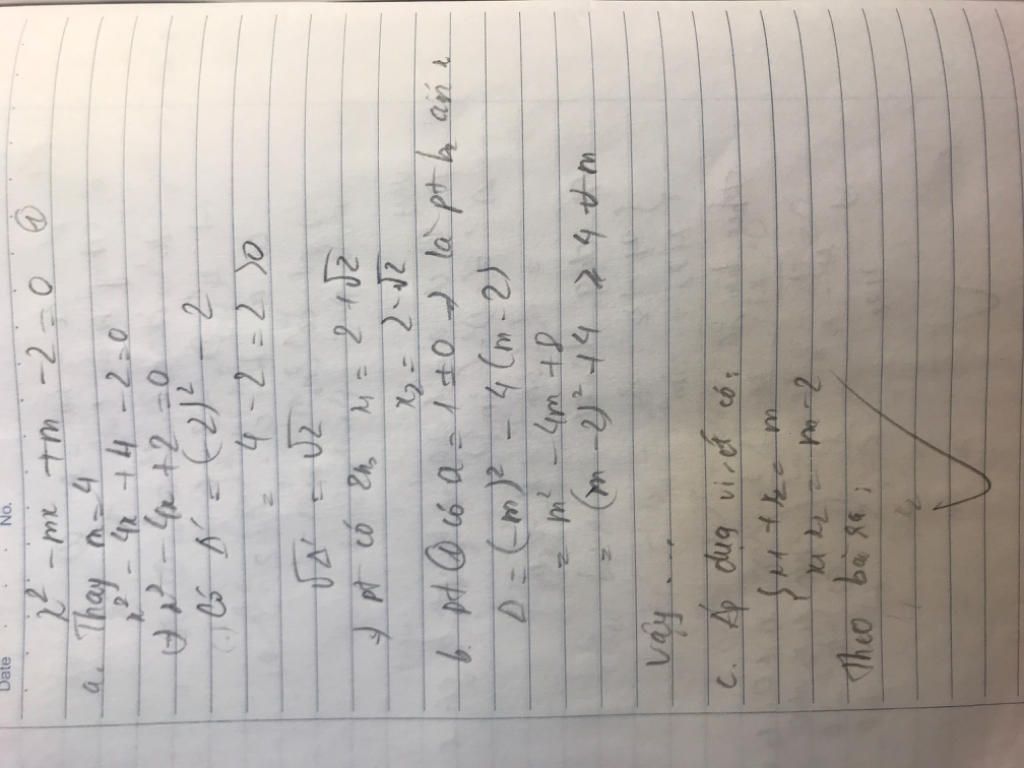 Date No.
x² - mx + m - 2 = 0 (1)
a. Thay m = 4
x² - 4x + 4 - 2 = 0
(=) x² - 4x + 2 = 0
Có Δ' = (-2)² - 2
= 4 - 2 = 2 > 0
√Δ' = √2
=) pt có 2n₀ x1 = 2 + √2
x2 = 2 - √2
b. pt (1) có a = 1 ≠ 0 → là pt b2 ẩn x
Δ = (-m)² - 4(m - 2)
= m² - 4m + 8
= (m - 2)² + 4 ≥ 4 ∀ m
Vậy ...
c. Áp dụg vi-ét có:
{ x1 + x2 = m
x1 x2 = m - 2
Theo bài ra: